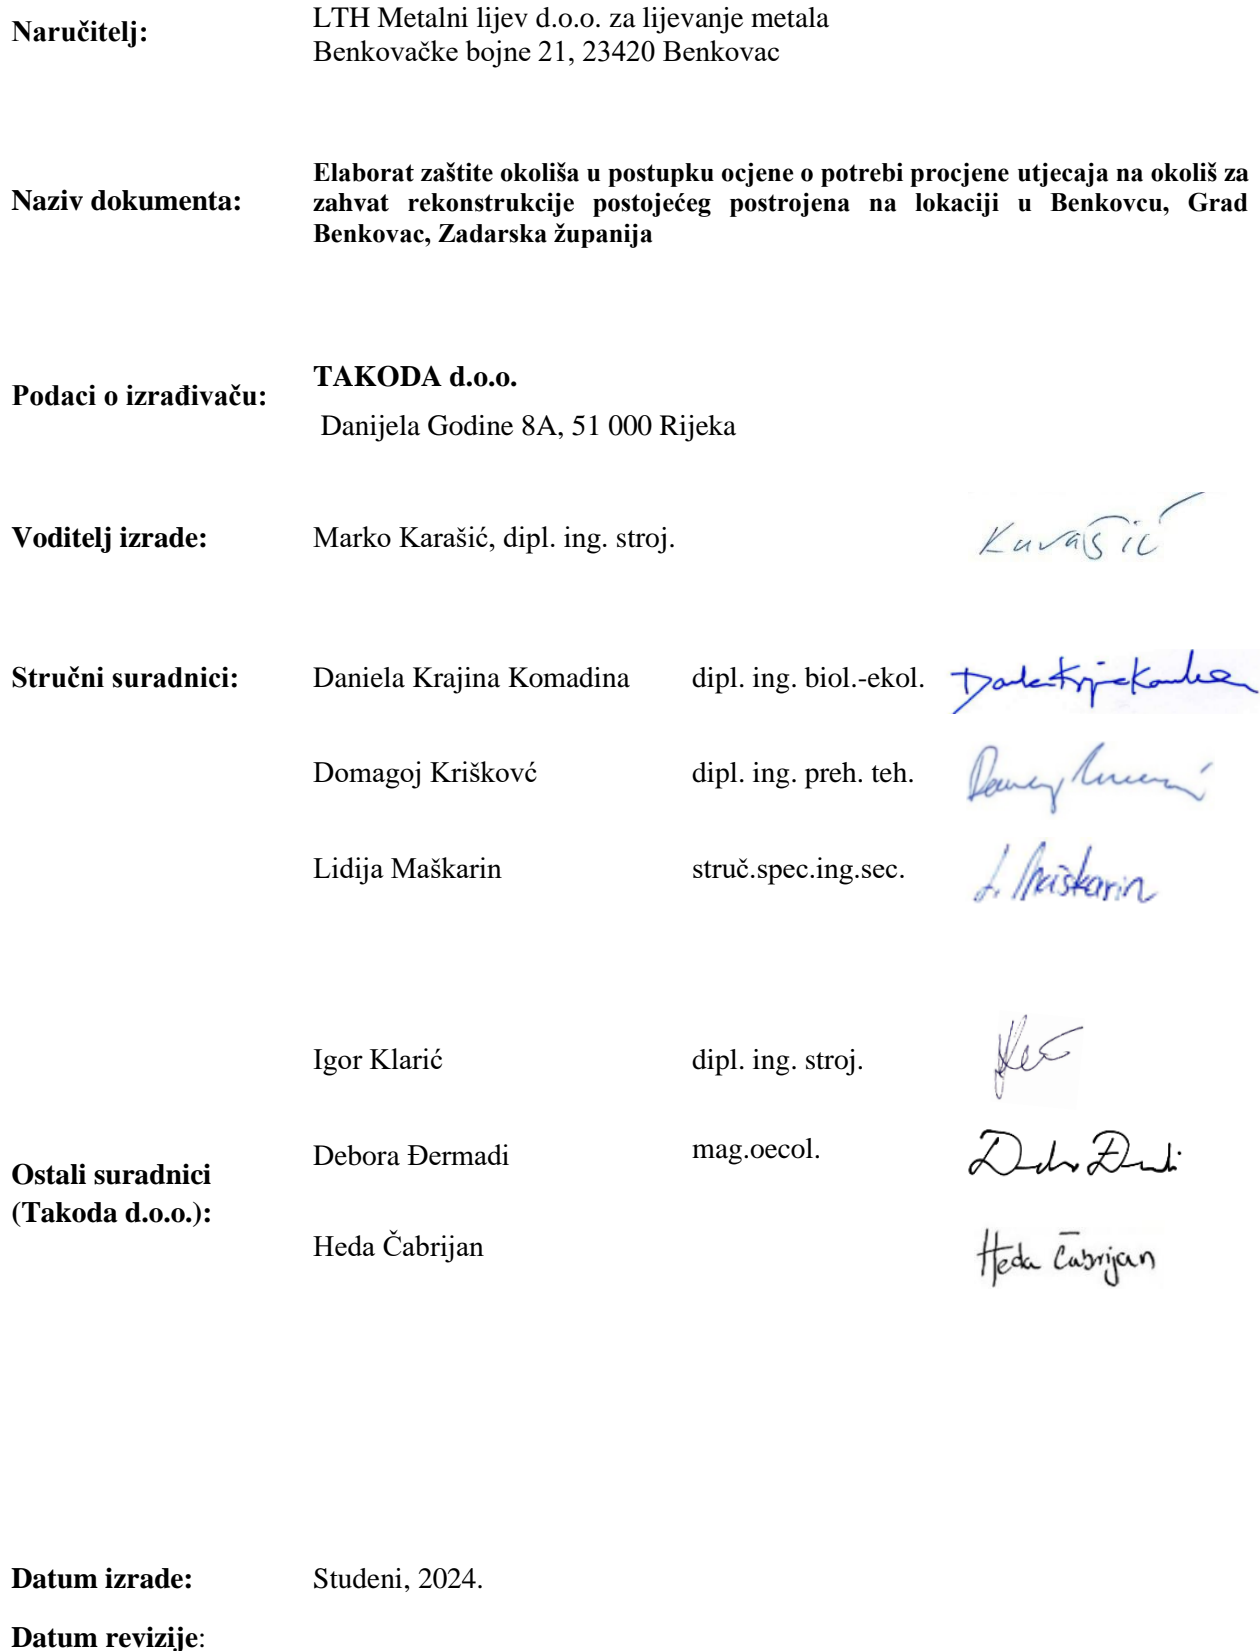 Naručitelj:
LTH Metalni lijev d.o.o. za lijevanje metala
Benkovačke bojne 21, 23420 Benkovac
Naziv dokumenta:
Elaborat zaštite okoliša u postupku ocjene o potrebi procjene utjecaja na okoliš za
zahvat rekonstrukcije postojećeg postrojena na lokaciji u Benkovcu, Grad
Benkovac, Zadarska županija
Podaci o izrađivaču:
TAKODA d.o.o.
Danijela Godine 8A, 51 000 Rijeka
Voditelj izrade: Marko Karašić, dipl. ing. stroj. Karašić
Stručni suradnici: Daniela Krajina Komadina dipl. ing. biol.-ekol.
Domagoj Kriškovć dipl. ing. preh. teh.
Lidija Maškarin struč.spec.ing.sec. L. Maškarin
Igor Klarić dipl. ing. stroj.
Debora Đermadi mag.oecol.
Ostali suradnici
(Takoda d.o.o.):
Heda Čabrijan Heda Čabrijan
Datum izrade: Studeni, 2024.
Datum revizije: